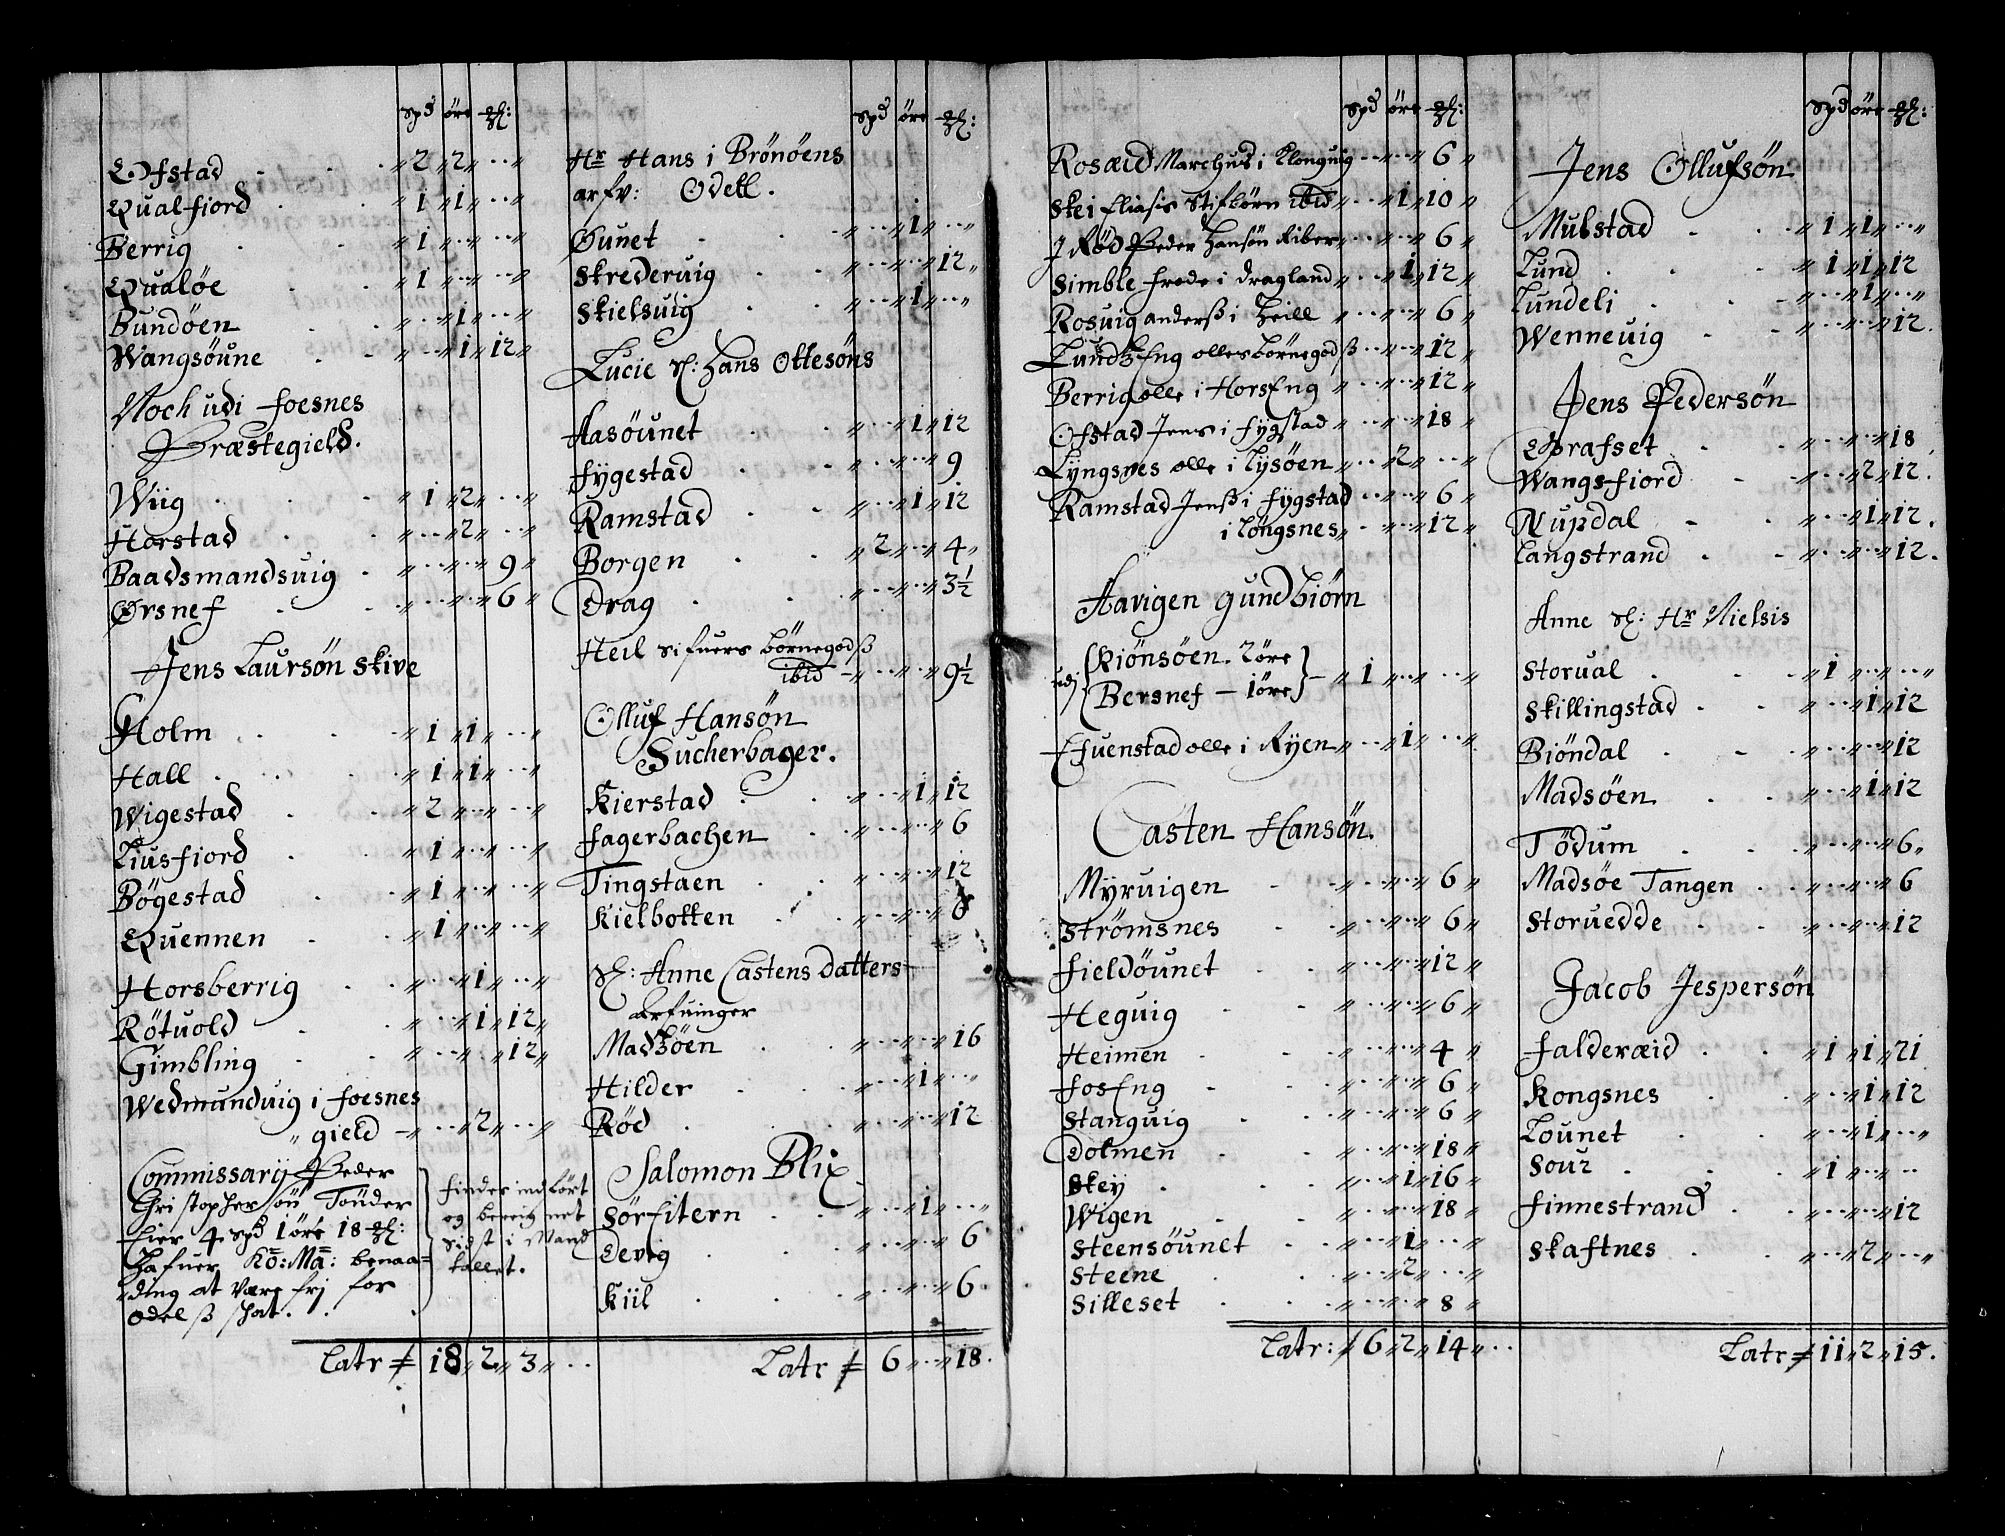 Spd öre ₰:
Opstad „ 2 „ 2 „ ··· „
Qualfiord „ 1 „ 1 „ ··· „
Berrig „ 1 „ ··· „ ··· „
Qualöe „ 1 „ ··· „ ··· „
Bundöen „ ··· „ 1 „ ··· „
Wangsöune „ ··· „ 1 „ 12 „
Noch udi foesnes
Præstegield.
Wiig „ 1 „ 2 „ ··· „
Horstad „ ··· „ 2 „ ··· „
Baadsmandsuig „ ··· „ ··· „ 9 „
Ørsnef „ ··· „ ··· „ 6 „
Jens Laursøn Skive
Holm „ 1 „ 1 „ ··· „
Hall „ 1 „ 1 „ ··· „
Wigestad „ 2 „ ··· „ ··· „
Liusfiord „ 1 „ ··· „ ··· „
Bögestad „ 1 „ ··· „ ··· „
Quennen „ 1 „ ··· „ ··· „
Horsberrig „ ··· „ 1 „ ··· „
Rötuold „ ··· „ 1 „ 12 „
Gimbling „ ··· „ ··· „ 12 „
Wedmunduig i foesnes
„ gield „ ··· „ 2 „ ··· „
Commissarij Peder
Christophersön Tønder
Eier 4 spd 1 öre 18 ₰:
Hafuer Kö: Ma: benaa=
„ding at være frj for
odelß skat.
findes indført
og beregnet
sidst i Mand
tallet.
Latr 18 „ 2 „ 3 „ ···
Spd öre ₰:
Hr Hans i Brönöens
arfv: Odell.
Øunet „ ··· „ 1 „ ··· „
Skrederuig „ ··· „ ··· „ 12 „
Skielsuig „ ··· „ 1 „ ··· „
Lucie Sl: Hans Ottesøns
Aasöunet „ ··· „ 1 „ 12
fygestad „ ··· „ ··· „ 9
Ramstad „ ··· „ 1 „ 12
Borgen „ 2 „ ··· „ 4 „
Drag „ ··· „ ··· „ 3½
Heil Sifuers börnegodß
ibid „ ··· „ ··· „ 9½
Olluf Hansøn
Sucherbager.
Kierstad „ ··· „ 1 „ 12
fagerbachen „ ··· „ ··· „ 6
Tingstaen „ ··· „ ··· „ 12
Kielbotten „ ··· „ ··· „ 6
Sl: Anne Castens datters
Arfuinger
Madsöen „ ··· „ ··· „ 16
Hilder „ ··· „ 1 „ ··· „
Rød „ ··· „ ··· „ 12
Salomon Blix
Sørfitern „ ··· „ 1 „ ··· „
Devig „ ··· „ ··· „ 6
Kiil „ ··· „ ··· „ 6
Latr 6 „ ··· „ 18.
Spd öre ₰:
Rosæid Marchus i Klonguig „ ··· „ ··· „ 6 „
Skei Eliasis Stifbörn ibid „ ··· „ 1 „ 10 „
J Rød Peder Hansön Riber „ ··· „ ··· „ 6 „
Simble frode i dragland „ ··· „ 1 „ 12 „
Rosuig anderß i Heill „ ··· „ ··· „ 6 „
Lundz Eng olles börnegodß „ ··· „ ··· „ 12 „
Berrig olle i HorsEng „ ··· „ ··· „ 12 „
Ofstad Jens i fygstad „ ··· „ ··· „ 18 „
Lyngsnes olle i Lysöen „ ··· „ 2 „ ··· „
Ramstad Jenß i fygstad „ ··· „ ··· „ 6 „
i Löngsnes „ ··· „ ··· „ 12 „
Aavigen gundbiörn
udj Kiönsöen. 2 öre
Bersnef — 1 öre — „ 1 „ ··· „ ··· „
Efuenstad olle i Ryen „ ··· „ 1 „ ··· „
Casten Hansøn.
Myruigen „ ··· „ ··· „ 6 „
Strömsnes „ ··· „ ··· „ 6 „
fieldöunet „ ··· „ ··· „ 12 „
Heguig „ ··· „ ··· „ 6 „
Heimen „ ··· „ ··· „ 4 „
fosEng „ ··· „ ··· „ 6 „
Stanguig „ ··· „ ··· „ 6 „
Dolmen „ ··· „ ··· „ 18 „
Skey „ ··· „ 1 „ 16 „
Wigen „ ··· „ ··· „ 18 „
Steensöunet „ ··· „ 1 „ ··· „
Steene „ ··· „ 2 „ ··· „
Silleset „ ··· „ ··· „ 8 „
Latr: 6 „ 2 „ 14 „ ···
Spd öre ₰:
Jens Ollufsøn
Mulstad „ 1 „ 1 „ ··· „
Lund „ 1 „ 1 „ 12
Lundeli „ ··· „ 1 „ ··· „
Wenneuig „ ··· „ ··· „ 12.
Jens Pedersøn
Oprafset „ ··· „ ··· „ 18
Wangsfiord „ ··· „ 2 „ 12.
Nupdal „ ··· „ 1 „ 12.
Langstrand „ ··· „ ··· „ 12.
Anne Sl: Hr Nielsis
Storual „ 1 „ ··· „ ··· „
Skillingstad „ ··· „ 1 „ 12
Biöndal „ ··· „ ··· „ 12
Madsöen „ ··· „ 1 „ 12
Tödum „ ··· „ ··· „ 6 „
Madsöe Tangen „ ··· „ ··· „ 6
Storuedde „ ··· „ ··· „ 12
Jacob Jespersøn
falderæid „ 1 „ 1 „ 21
Kongsnes „ ··· „ 1 „ 12
Lounet „ ··· „ 1 „ ··· „
Sour „ 1 „ ··· „ ···
finnestrand „ ··· „ ··· „ 12
Skaftnes „ ··· „ 2 „ ··· „
Latr 11 „ 2 „ 15.